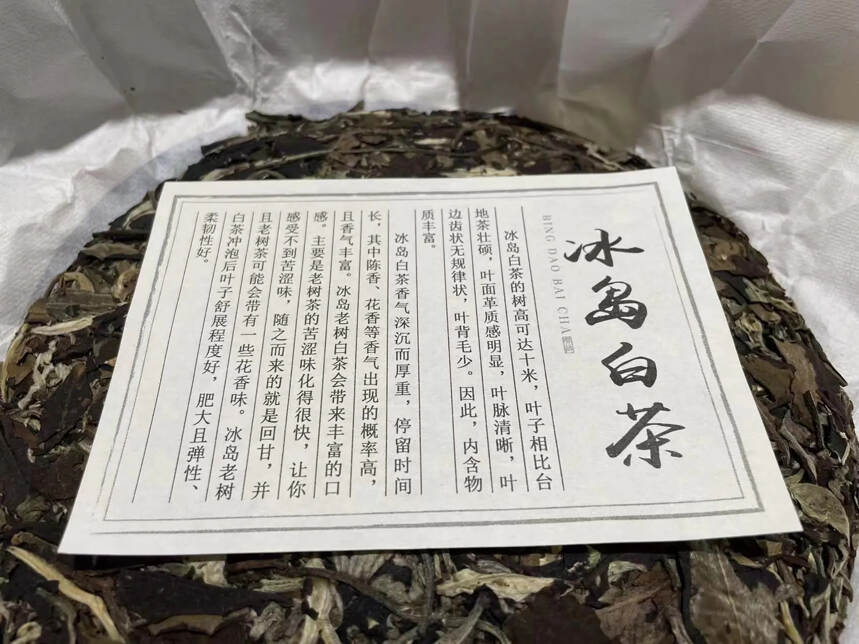 冰岛白茶
BING DAO BAI CHA
冰岛白茶的树高可达十米，叶子相比台
地茶壮硕，叶面革质感明显，叶脉清晰，叶
边齿状无规律状，叶背毛少。因此，内含物
质丰富。
冰岛白茶香气深沉而厚重，停留时间
长，其中陈香、花香等香气出现的概率高，
且香气丰富。冰岛老树白茶会带来丰富的口
感。主要是老树茶的苦涩味化得很快，让你
感受不到苦涩味，随之而来的就是回甘，并
且老树茶可能会带有一些花香味。冰岛老树
白茶冲泡后叶子舒展程度好，肥大且弹性、
柔韧性好。